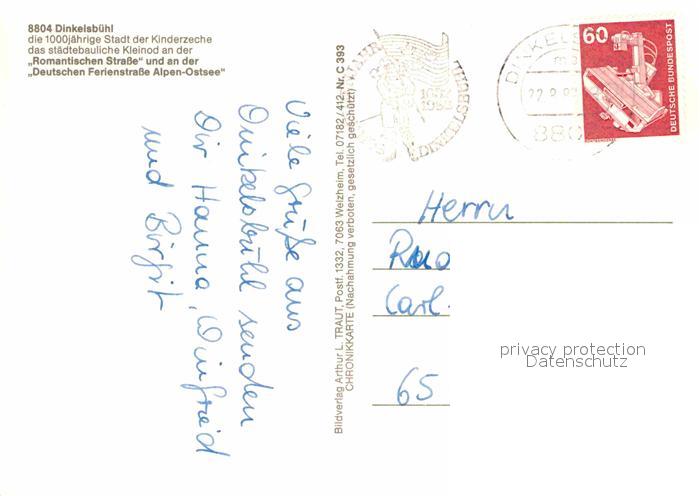 8804 Dinkelsbühl
die 1000jährige Stadt der Kinderzeche
das städtebauliche Kleinod an der
„Romantischen Straße“ und an der
„Deutschen Ferienstraße Alpen-Ostsee“
Viele Grüße aus
Dinkelsbühl senden
Dir Hanna, Winfried
und Birgit
Bildverlag Arthur L. TRAUT, Postf. 1332, 7063 Welzheim, Tel. 07182/412, Nr. C 393
CHRONIKKARTE (Nachahmung verboten, gesetzlich geschützt)
DINKELSBÜHL
DINKELS
880
60
DEUTSCHE BUNDESPOST
Herrn
Carl.
65
privacy protection
Datenschutz